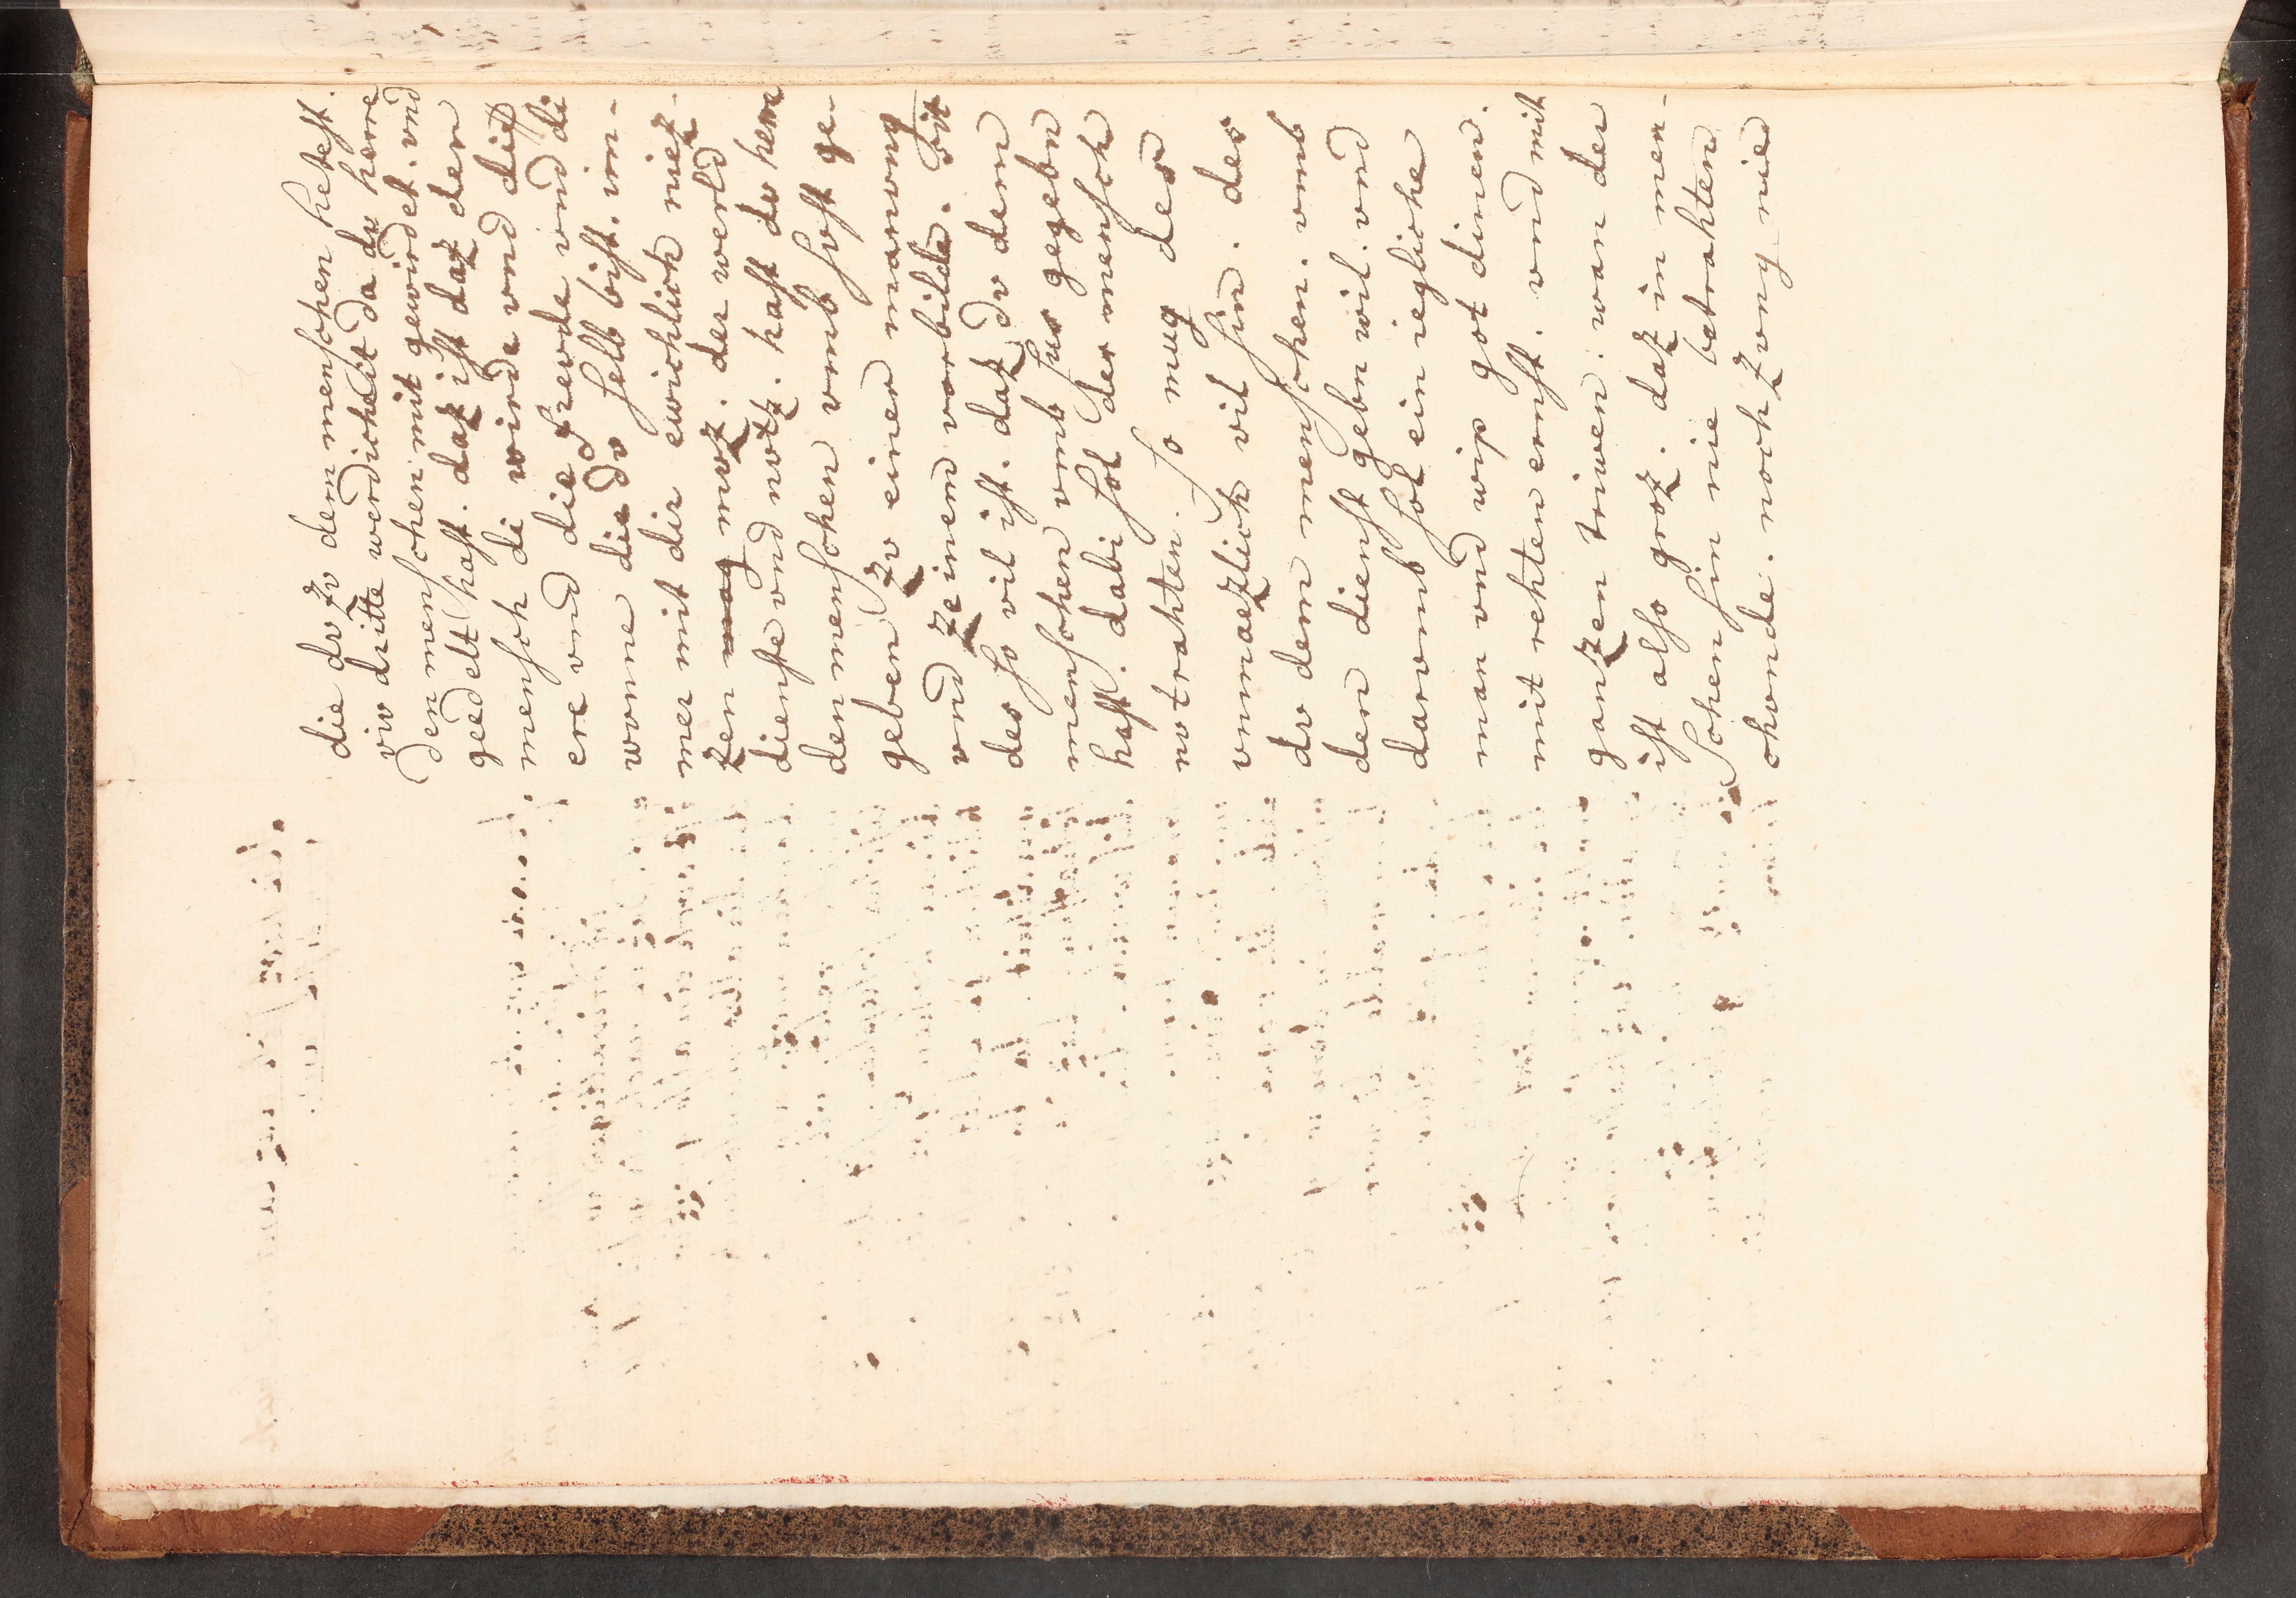 die dv zv dem menschen hetest.
viv dritte werdicheit da dv herre
den menschen mit gewirdet. vnd
geedelt hast. daz ist daz der
mensch di wirde vnd die
ere vnd die frevde vnd di
wonne die dv selb bist. im-
mer mit dir ewichlich niez-
zen mvz. der werld
dienste vnd notz. hast dv herre
den menschen vmb svst ge-
geben zv einer manvng
vnd zeinem vorbilde. bit
des so vil ist. daz dv dem
menschen vmb sus gegebn
hast. dabi sol der mensch
notrahten. so mug des
vnmaezlich vil sin. des
dv dem menschen. vmb
den dienst gebn wil. vnd
darvmb sol ein iegliche
man vnd wip got dinen.
mit rehten ernst. vnd mit
ganzen triwen. wan der
ist also groz. daz in men-
schen sin nie betrahten
chvnde. noch zvng nie